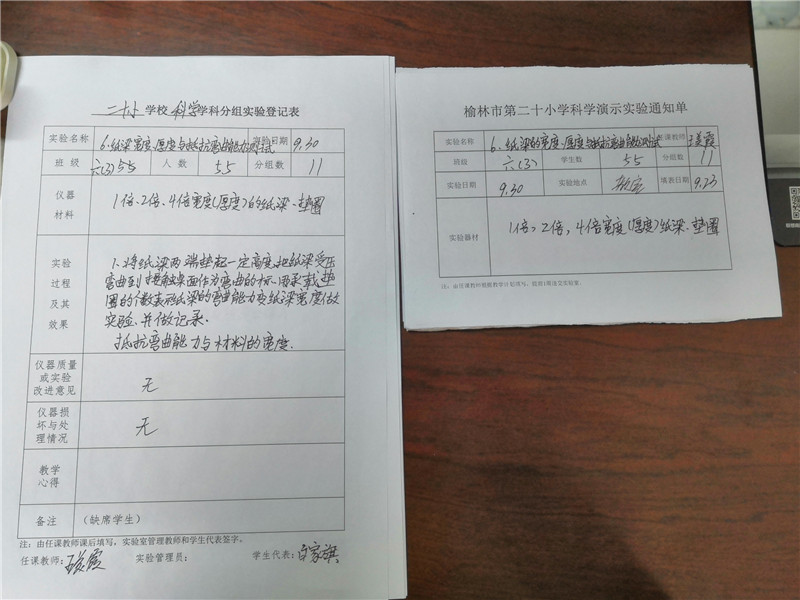 二十小学校科学学科分组实验登记表
实验名称 6.纸梁宽度、厚度与抵抗弯曲能力测试 实验日期 9.30
班级 六(3) 人数 55 分组数 11
仪器材料 1倍、2倍、4倍宽度(厚度)的纸梁、垫圈
实验过程及其效果
1.将纸梁两端垫起一定高度,把纸梁受压
弯曲到接触桌面作为弯曲的标
圈的个数表示纸梁的弯曲能力变纸梁宽度依次
实验、并做记录.
抵抗弯曲能力与材料的宽度.
仪器质量或实验改进意见 无
仪器损坏与处理情况 无
教学心得
备注 (缺席学生)
注:由任课教师课后填写,实验室管理教师和学生代表签字。
任课教师: 实验管理员: 学生代表:白家旗
榆林市第二十小学科学演示实验通知单
实验名称 6.纸梁的宽度、厚度与抵抗弯曲能力测试 任课教师
班级 六(3) 学生数 55 分组数 11
实验日期 9.30 实验地点 填表日期 9.23
实验器材 1倍、2倍、4倍宽度(厚度)纸梁、垫圈
注:由任课教师根据教学计划填写,提前1周送交实验室。